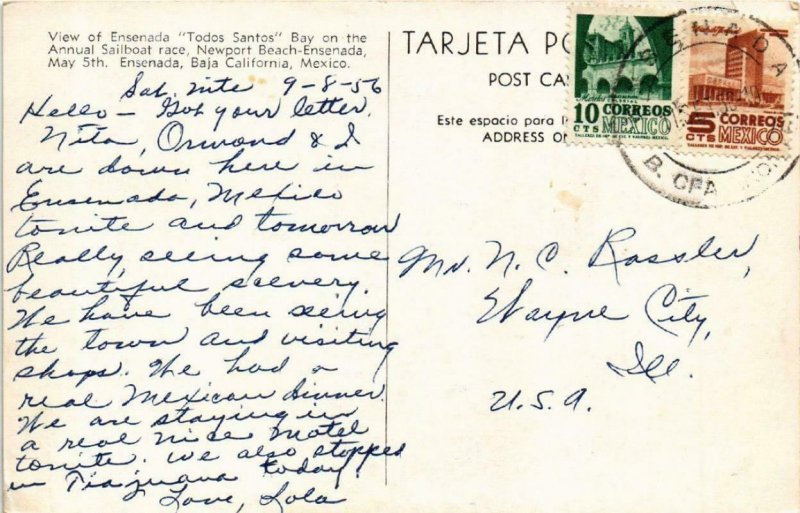 View of Ensenada "Todos Santos" Bay on the
Annual Sailboat race, Newport Beach-Ensenada,
May 5th. Ensenada, Baja California, Mexico.
Sat. nite 9-8-56
Hello - Got your letter.
Nita, Ormond & I
are down here in
Ensenada, Mexico
tonite and tomorrow
Really seeing some
beautiful scenery.
We have been seeing
the town and visiting
shops. We had a
real Mexican dinner.
We are staying in
a real nice motel
tonite. We also stopped
in Tiajuana today.
Love, Lola
TARJETA PO
POST CA
Este espacio para l
ADDRESS ON
10 CORREOS
CTS MEXICO
5 CORREOS
CTS MEXICO
B. CFA
Mr. N. C. Rassler,
Wayne City,
Ill.
U.S.A.